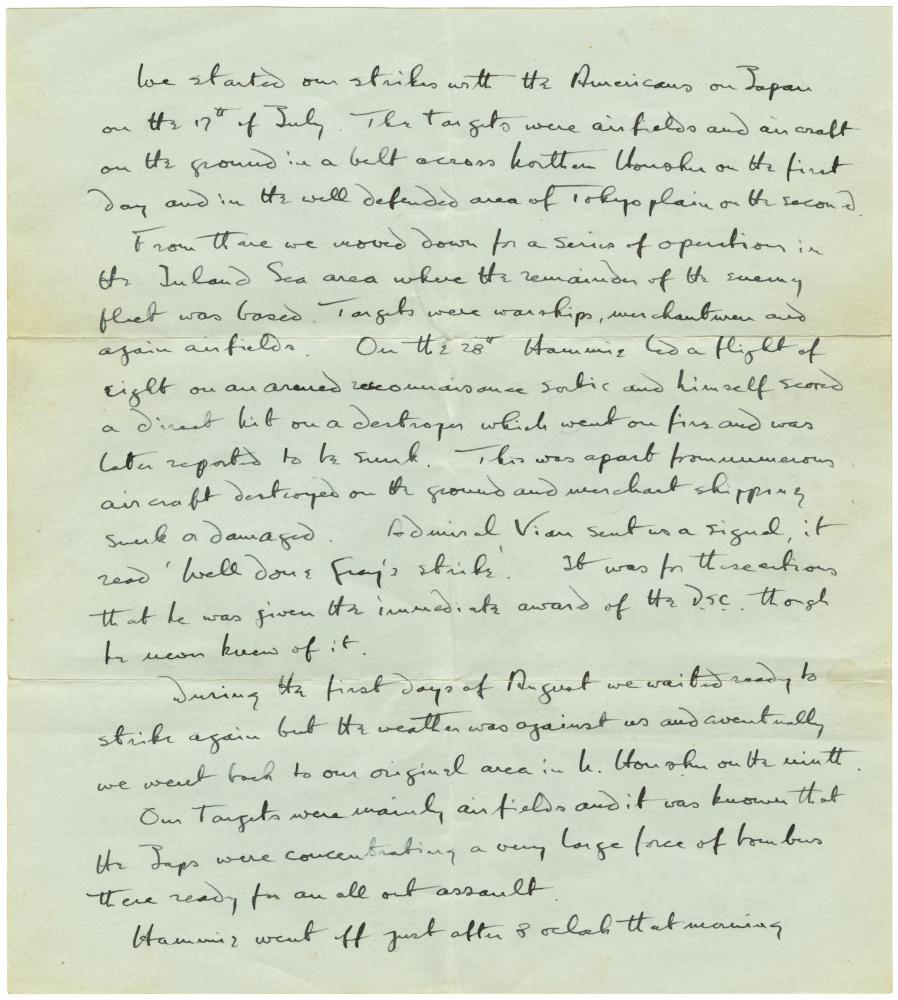 We started our strikes with the Americans on Japan
on the 17th of July. The targets were airfields and aircraft
on the ground in a belt across Northern Honshu on the first
day and in the well defended area of Tokyo plain on the second.
From there we moved down for a series of operations in
the Inland Sea area where the remainder of the enemy
fleet was based. Targets were warships, merchantmen and
again airfields. On the 28th Hammie led a flight of
eight on an armed reconnaisance sortie and himself scored
a direct hit on a destroyer which went on fire and was
later reported to be sunk. This was apart from numerous
aircraft destroyed on the ground and merchant shipping
sunk or damaged. Admiral Vian sent us a signal, it
read 'Well done Gray's strike'. It was for these actions
that he was given the immediate award of the D.S.C. though
he never knew of it.
During the first days of August we waited ready to
strike again but the weather was against us and eventually
we went back to our original area in N. Honshu on the ninth.
Our targets were mainly airfields and it was known that
the Japs were concentrating a very large force of bombers
there ready for an all out assault.
Hammie went off just after 8 oclock that morning